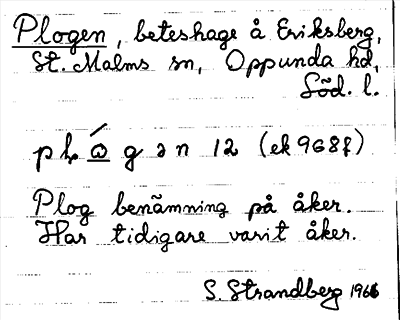 Plogen, beteshage å Eriksberg,
St. Malms sn, Oppunda hd,
Söd. l.
12 (ek 968f)
Plog benämning på åker.
Har tidigare varit åker.
S. Strandberg 1966